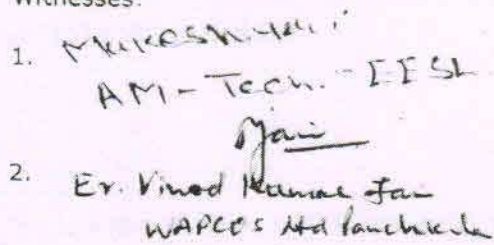 Witnesses:
1. Mukesh
AM - Tech. - EESL
Jain
2. Er. Vinod Kumar Jain
WAPCOS Ltd Panchkula